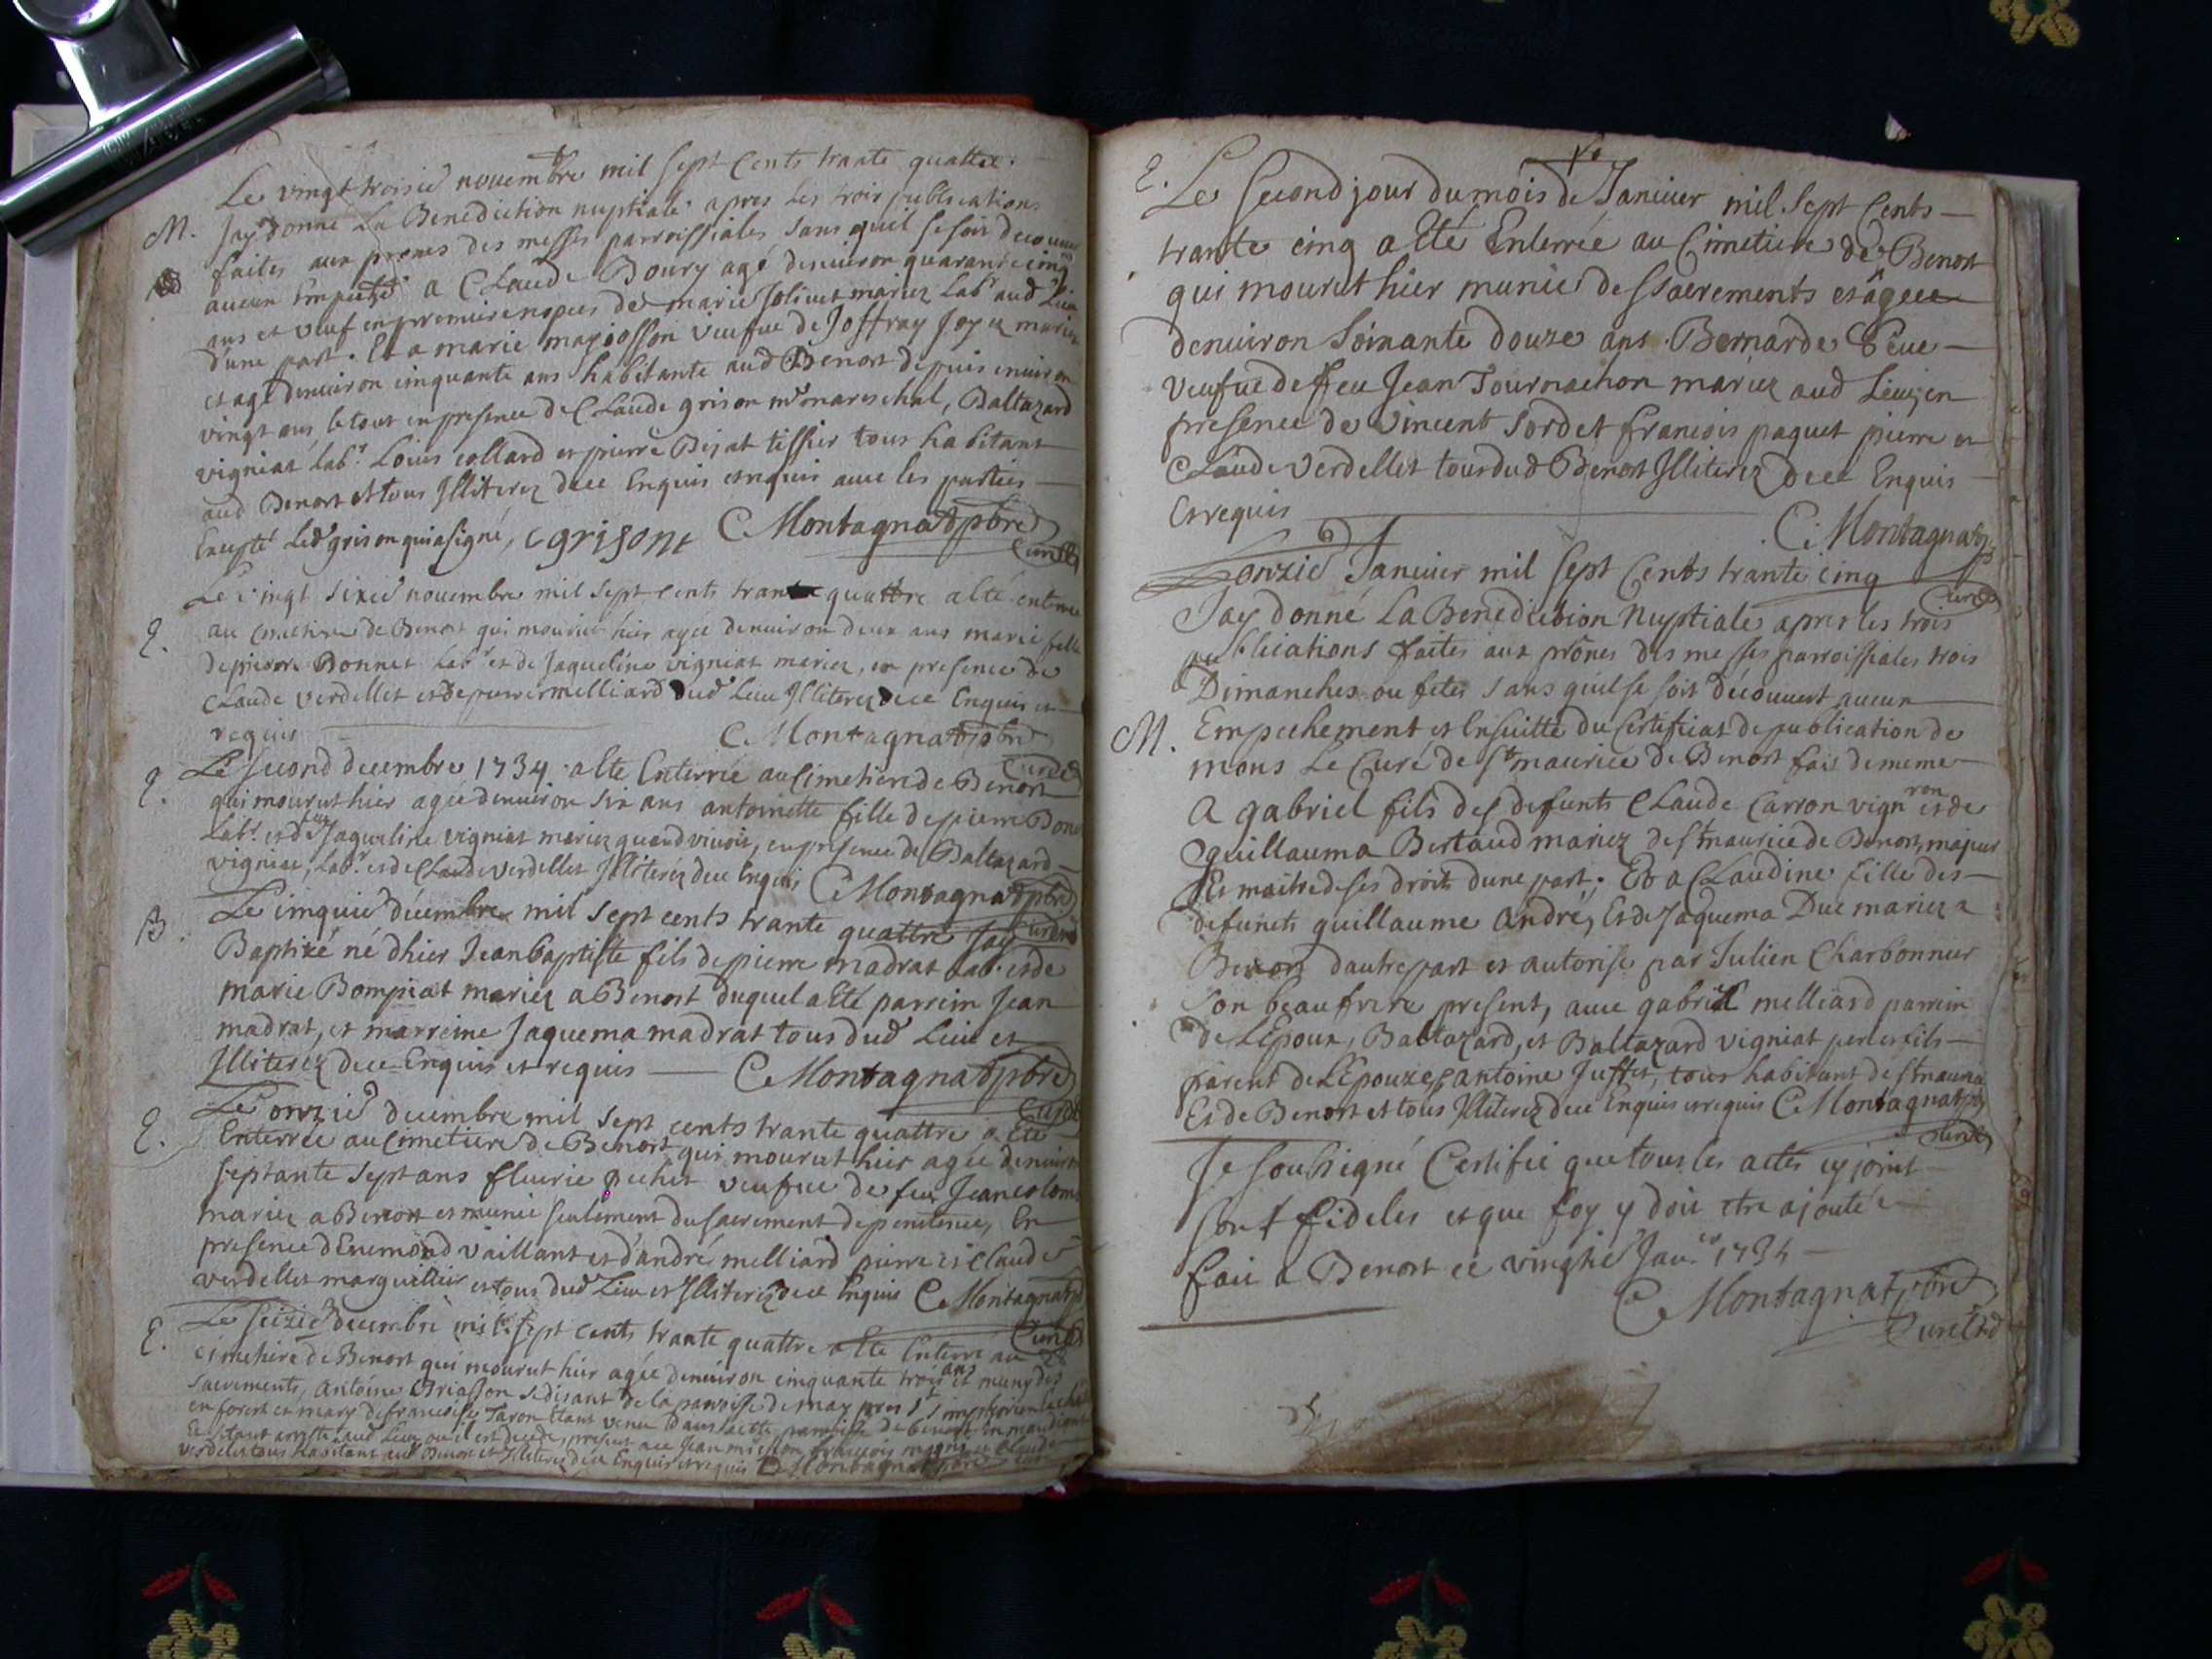 Le vingt troisie novembre mil sept cents trante quattre
M. Jay donné La Benediction nuptiale apres les trois publications
faites aux prones des messes parroissiales sans quil se soit decouvert
aucun Empeche a Claude Doury agé denuiron quarante cinq
ans et veuf en premiere nopces de marie Jolivet mariez Labr aud Lieu
dune part. Et a marie veufue de Joffray mariez
et agé denuiron cinquante ans habitante aud Benost depuis enuiron
vingt ans, le tout en presence de Claude grison mre mareschal, Baltazard
vigniat labr. Louis collard et pierre Bisat tissier tous habitant
aud Benost et tous Illiterez dece Enquis et requis avec les parties
Excepté Led grison qui a signé, C grison C Montagnat pbre
Curé
Le vingt sixie novembre mil sept cents trante quattre a Eté enterrée
E. au cimetiere de Benost qui mourut hier agée denuiron deux ans marie fille
de pierre Bonnet Labr et de Jaqueline vigniat mariez, en presence de
Claude verdellet et de pierre melliard dud Lieu Illiterez dece Enquis et
requis C Montagnat pbre
Curé
E. Le second decembre 1734 a Eté Enterrée au Cimetiere de Benost
qui mourut hier agée denuiron six ans antoinette fille de pierre Bonet
Labr. et de Jaqueline vigniat mariez quand vivoit, en presence de Baltazard
vigniat, Labr. et de Claude verdellet Illiterez dece Enquis C Montagnat pbre
Curé
B. Le cinquie décembre mil sept cents trante quattre Jay
Baptizé né dhier Jean baptiste fils de pierre madrat Lab. et de
marie Bompiat mariez a Benost duquel a Eté parrein Jean
madrat, et marreine Jaquema madrat tous dud Lieu et
Illiterez dece Enquis et requis C Montagnat pbre
Curé
Le onzie decembre mil sept cents trante quattre a Eté
E. Enterrée au Cimetiere de Benost qui mourut hier agée denuiron
septante sept ans fleurie pechet veufue de feu Jean colomb
mariez a Benost et munie seulement du sacrement de penitence, En
presence dEnemond vaillant et d'andré melliard pierre et Claude
verdellet marguillier et tous dud Lieu et Illiterez dece Enquis C Montagnat
Curé
Le seizie decembre mil sept cents trante quattre a Eté Enterré au
E. cimetiere de Benost qui mourut hier agée denuiron cinquante trois ans et muny des
sacrements, antoine se disant de la paroisse de may pres St
en forest et mary de francoise Taron Etant venu dans cette paroisse de benost en mandiant
Et Etant arresté aud Lieu ou il est decedé, present avec Jean francois et Claude
verdellet tous habitant aud Benost et Illiterez dece Enquis et requis C Montagnat pbre
E. Le second jour du mois de Januier mil sept Cents
trante cinq a Eté Enterrée au Cimetiere de Benost
qui mourut hier munie des Sacrements et agée
denuiron soixante douze ans Bernarde
veufue de feu Jean Tournachon mariez aud Lieu, en
presence de vincent sordet francois paquet pierre et
Claude verdellet tous dud Benost Illiterez dece Enquis
Et requis
C. Montagnat
Curé
Le onzie Januier mil sept Cents trante cinq
Jay donné La Benediction Nuptiale apres les trois
publications faites aux prônes des messes parroissiales trois
Dimanches ou fetes sans quil se soit découvert aucun
M. Empechement et Ensuitte du Certificat de publication de
mons Le Curé de St maurice de Benost fait de meme
a gabriel fils des defunts Claude Carron vignron et de
guillauma Bertaud mariez de St maurice de Benost, majeur
Et maitre de ses droits dune part; Et a Claudine fille des
defuncts guillaume andré, Et de Jaquema Duc mariez a
Benost dautre part et autorise par Julien Charbonneur
son beaufrere present, avec gabriel melliard parrein
de LEpoux, Baltazard, et Baltazard vigniat pere et fils
parent de LEpouze, antoine Juffet, tous habitant de St maurice
Et de Benost et tous Illiterez dece Enquis et requis C Montagnat pbre
Curé
Je soussigné Certifie que tous les actes cy joint
sont fideles et que foy y doit etre ajoutée
fait a Benost ce vingtie Janer 1734
C Montagnat pbre
Curé